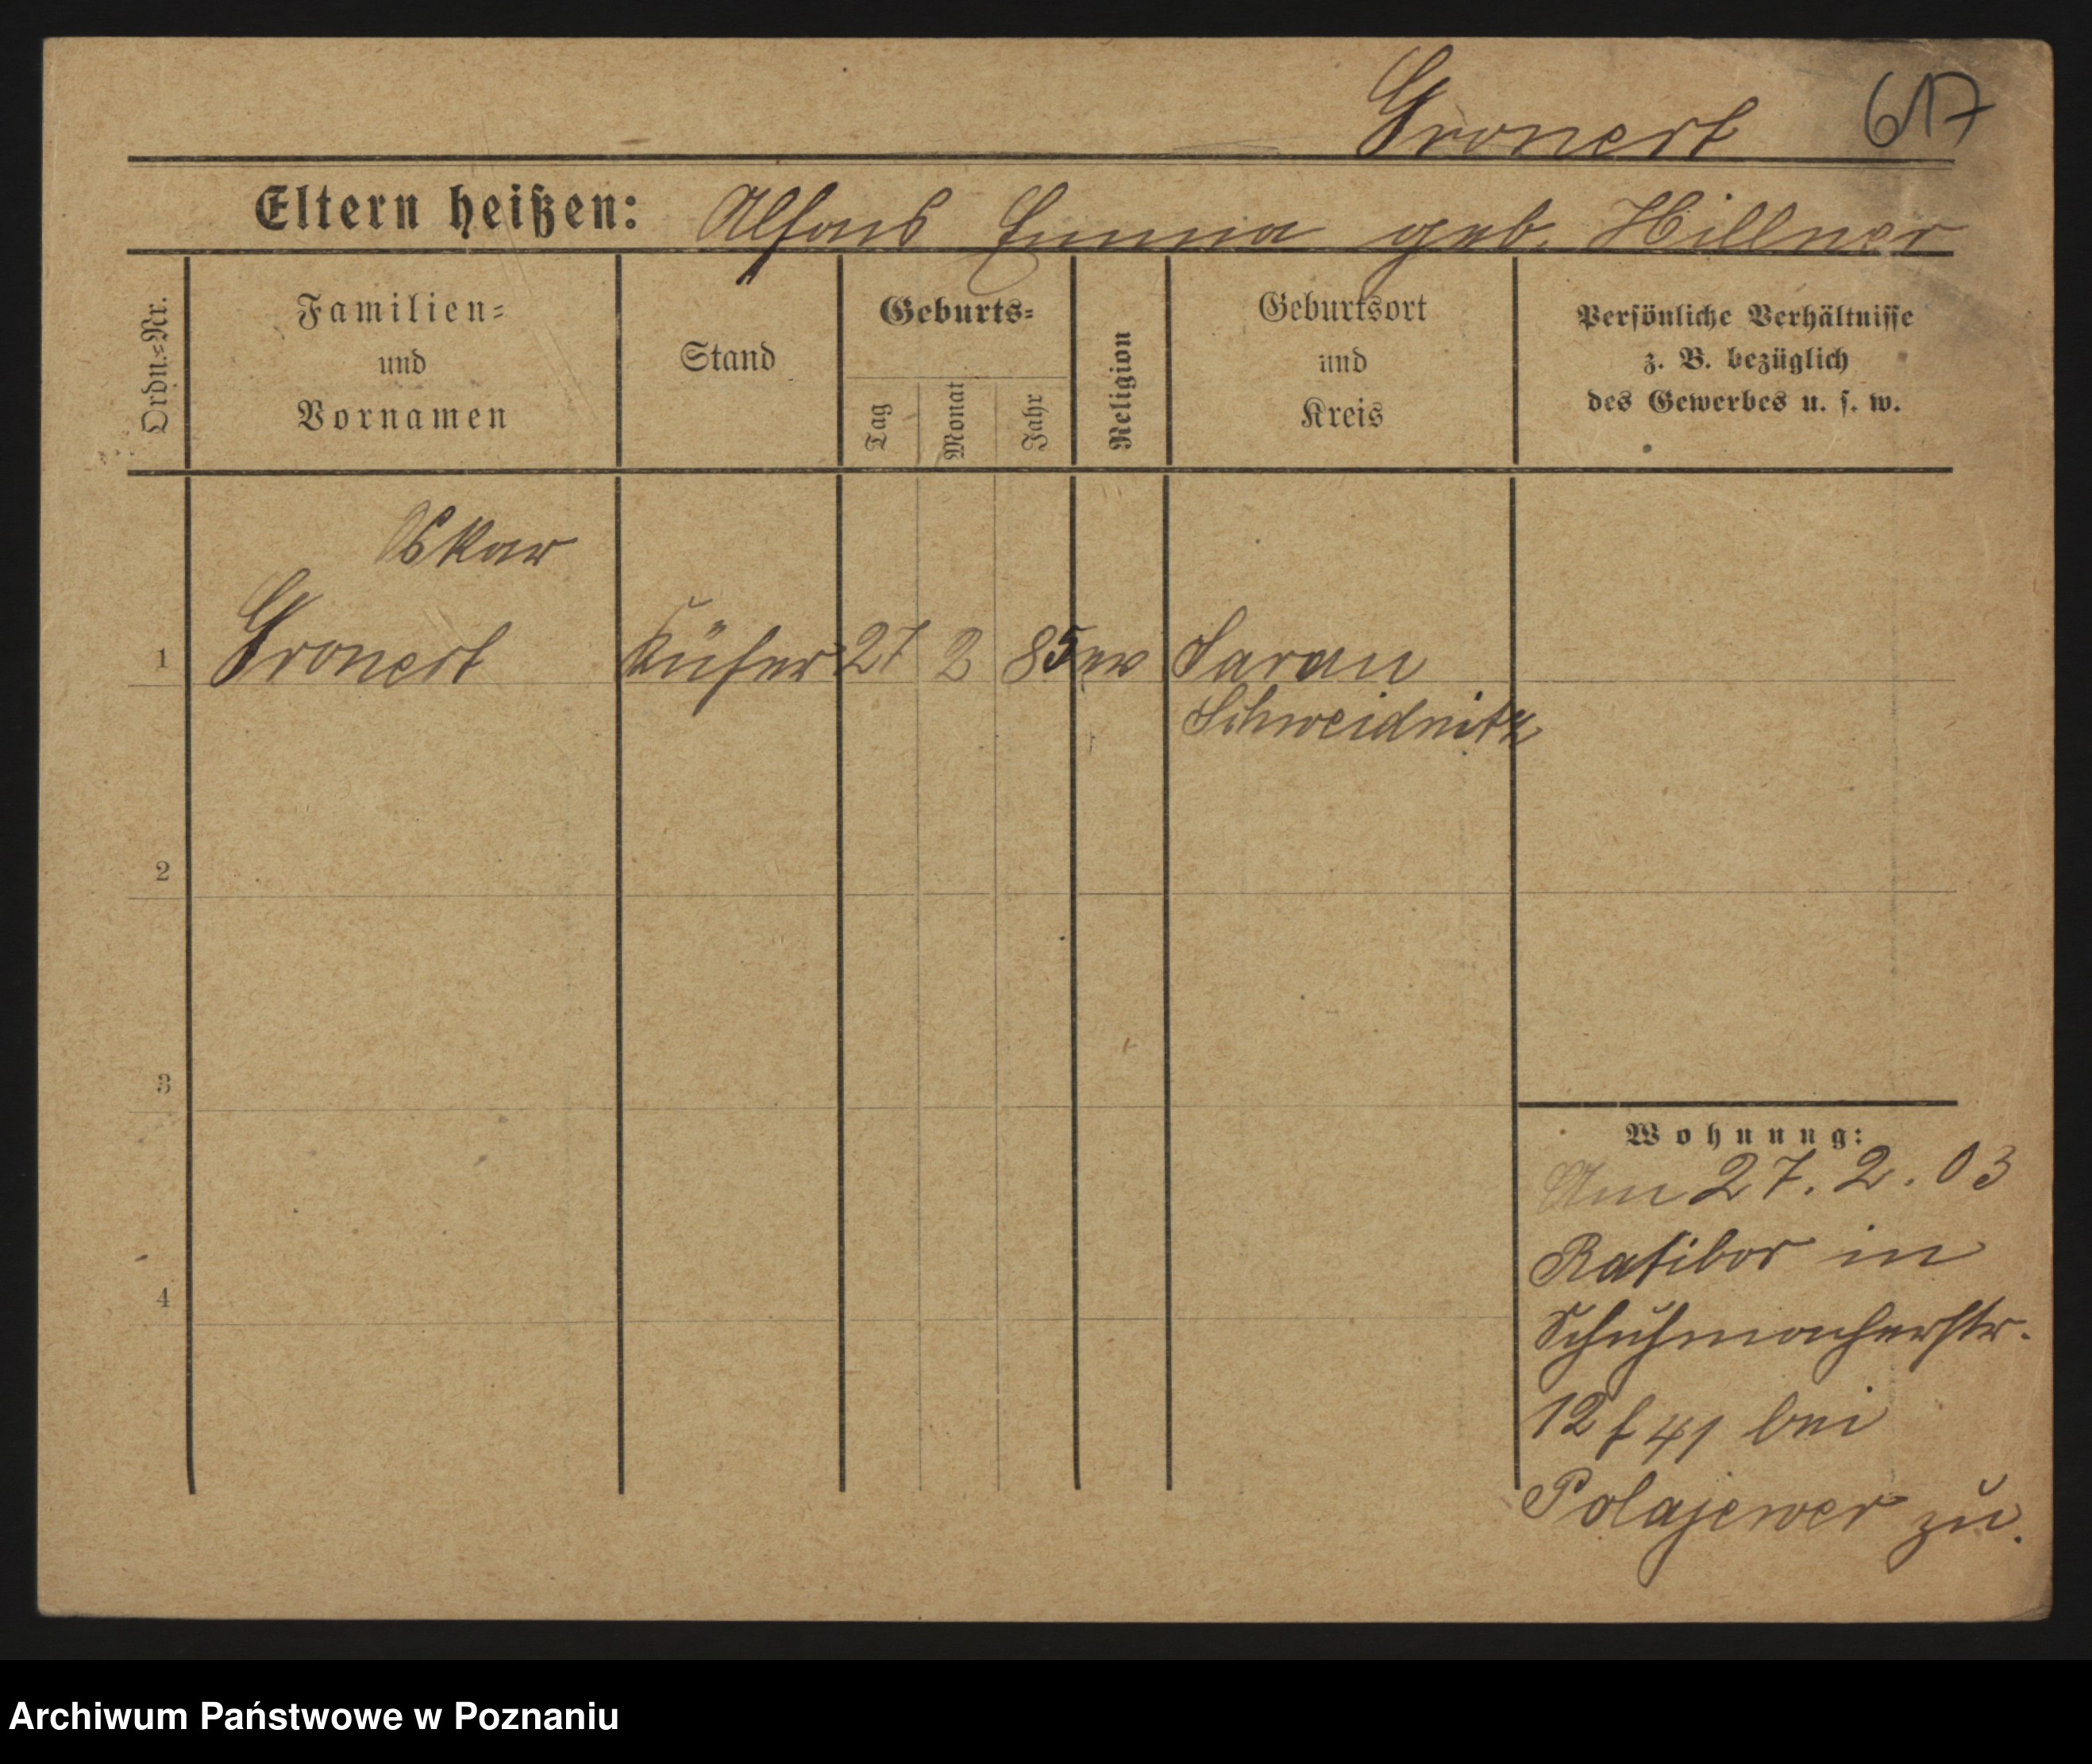 Gronert 617
Eltern heißen: Alfons Emma geb. Hillner
Ordn.=Nr.
Familien=
und
Vornamen
Stand
Geburts=
Tag
Monat
Jahr
Religion
Geburtsort
und
Kreis
Persönliche Verhältnisse
z. B. bezüglich
des Gewerbes u. s. w.
Oskar
1 Gronert Küfer 27 2 85 ev Saran
Schweidnitz
2
3
4
Wohnung:
Am 27. 2. 03
Ratibor in
Schuhmacherstr.
12 f 41 bei
Polajewer zu.
Archiwum Państwowe w Poznaniu